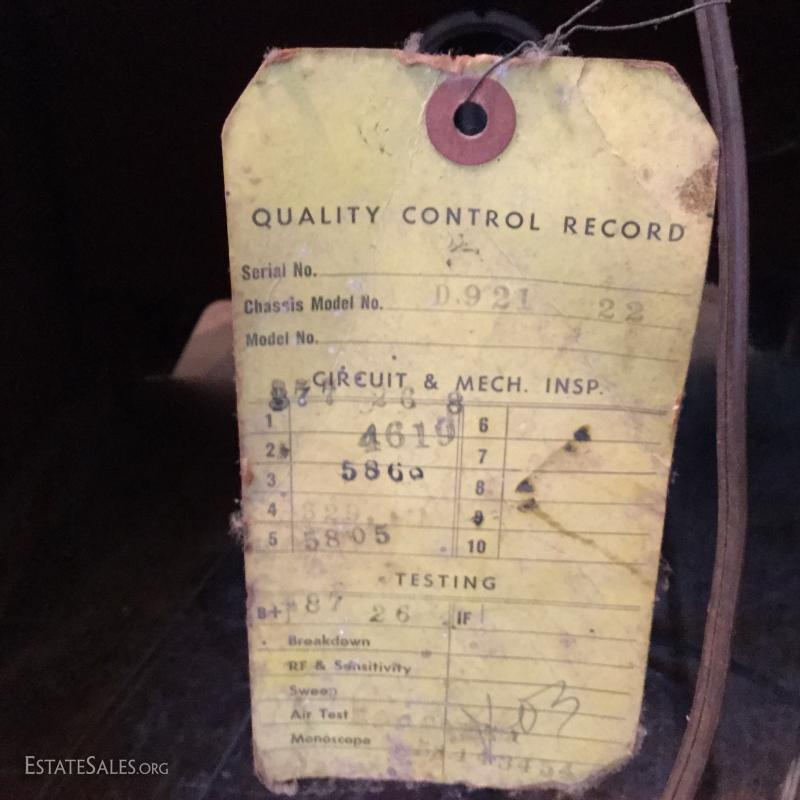 QUALITY CONTROL RECORD
Serial No.
Chassis Model No. D.921 22
Model No.
CIRCUIT & MECH. INSP.
1 6
2 4619 7
3 5860 8
4 9
5 5805 10
TESTING
B+ 87 26 IF
Breakdown
RF & Sensitivity
Sweep
Air Test
Monoscope
ESTATESALES.ORG